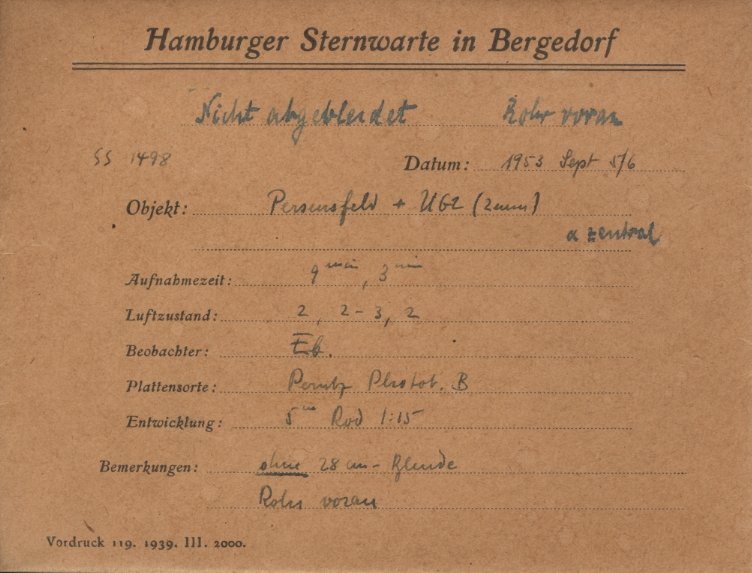 Hamburger Sternwarte in Bergedorf
Nicht abgeblendet Rohr voran
SS 1498 Datum: 1953 Sept 5/6
Objekt: Perseusfeld + UGZ (2mm)
α zentral
Aufnahmezeit: 9 min, 3 min
Luftzustand: 2, 2-3, 2
Beobachter: Eb.
Plattensorte: Perutz Phototi. B
Entwicklung: 5 m Rod 1:15
Bemerkungen: ohne 28 cm - Blende
Rohr voran
Vordruck 119. 1939. III. 2000.